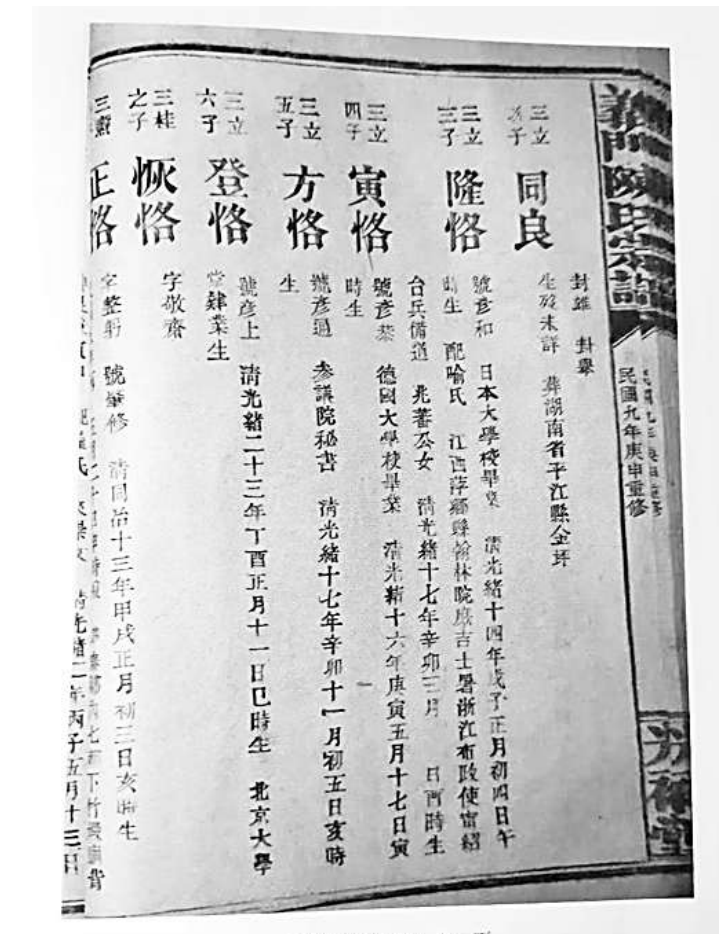 義門陳氏宗譜
民國九年庚申重修
民國九年庚申重修
光裕堂
封雉 封舉
生歿未詳 葬湖南省平江縣金坪
三立
子
同良
三立
三子
隆恪
號彥和 日本大學校畢業 清光緒十四年戊子正月初四日午
時生 配喻氏 江西萍鄉縣翰林院庶吉士署浙江布政使甯紹
台兵備道 兆蕃公女 清光緒十七年辛卯三月 日酉時生
三立
四子
寅恪
號彥恭 德國大學校畢業 清光緒十六年庚寅五月十七日寅
時生
三立
五子
方恪
號彥通 參議院秘書 清光緒十七年辛卯十一月初五日亥時
生
三立
六子
登恪
號彥上 清光緒二十三年丁酉正月十一日巳時生 北京大學
堂肄業生
三桂
之子
恢恪
字敬齋
三
正恪
字整躬 號肇修 清同治十三年甲戌正月初三日亥時生
氏 清光緒二年丙子五月十三日